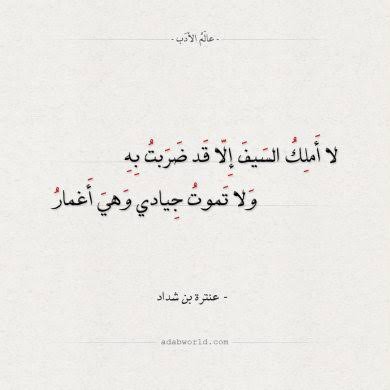 - عالَمُ الأدَب -
لا أَملِكُ السَيفَ إِلّا قَد ضَرَبتُ بِهِ
وَلا تَموتُ جِيادي وَهيَ أَغمارُ
- عنترة بن شداد
adabworld.com